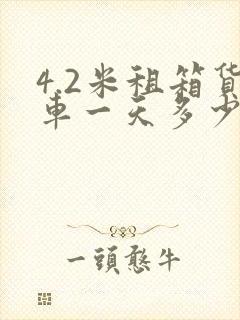 4.2米租箱货
车一天多少
一頭憨牛